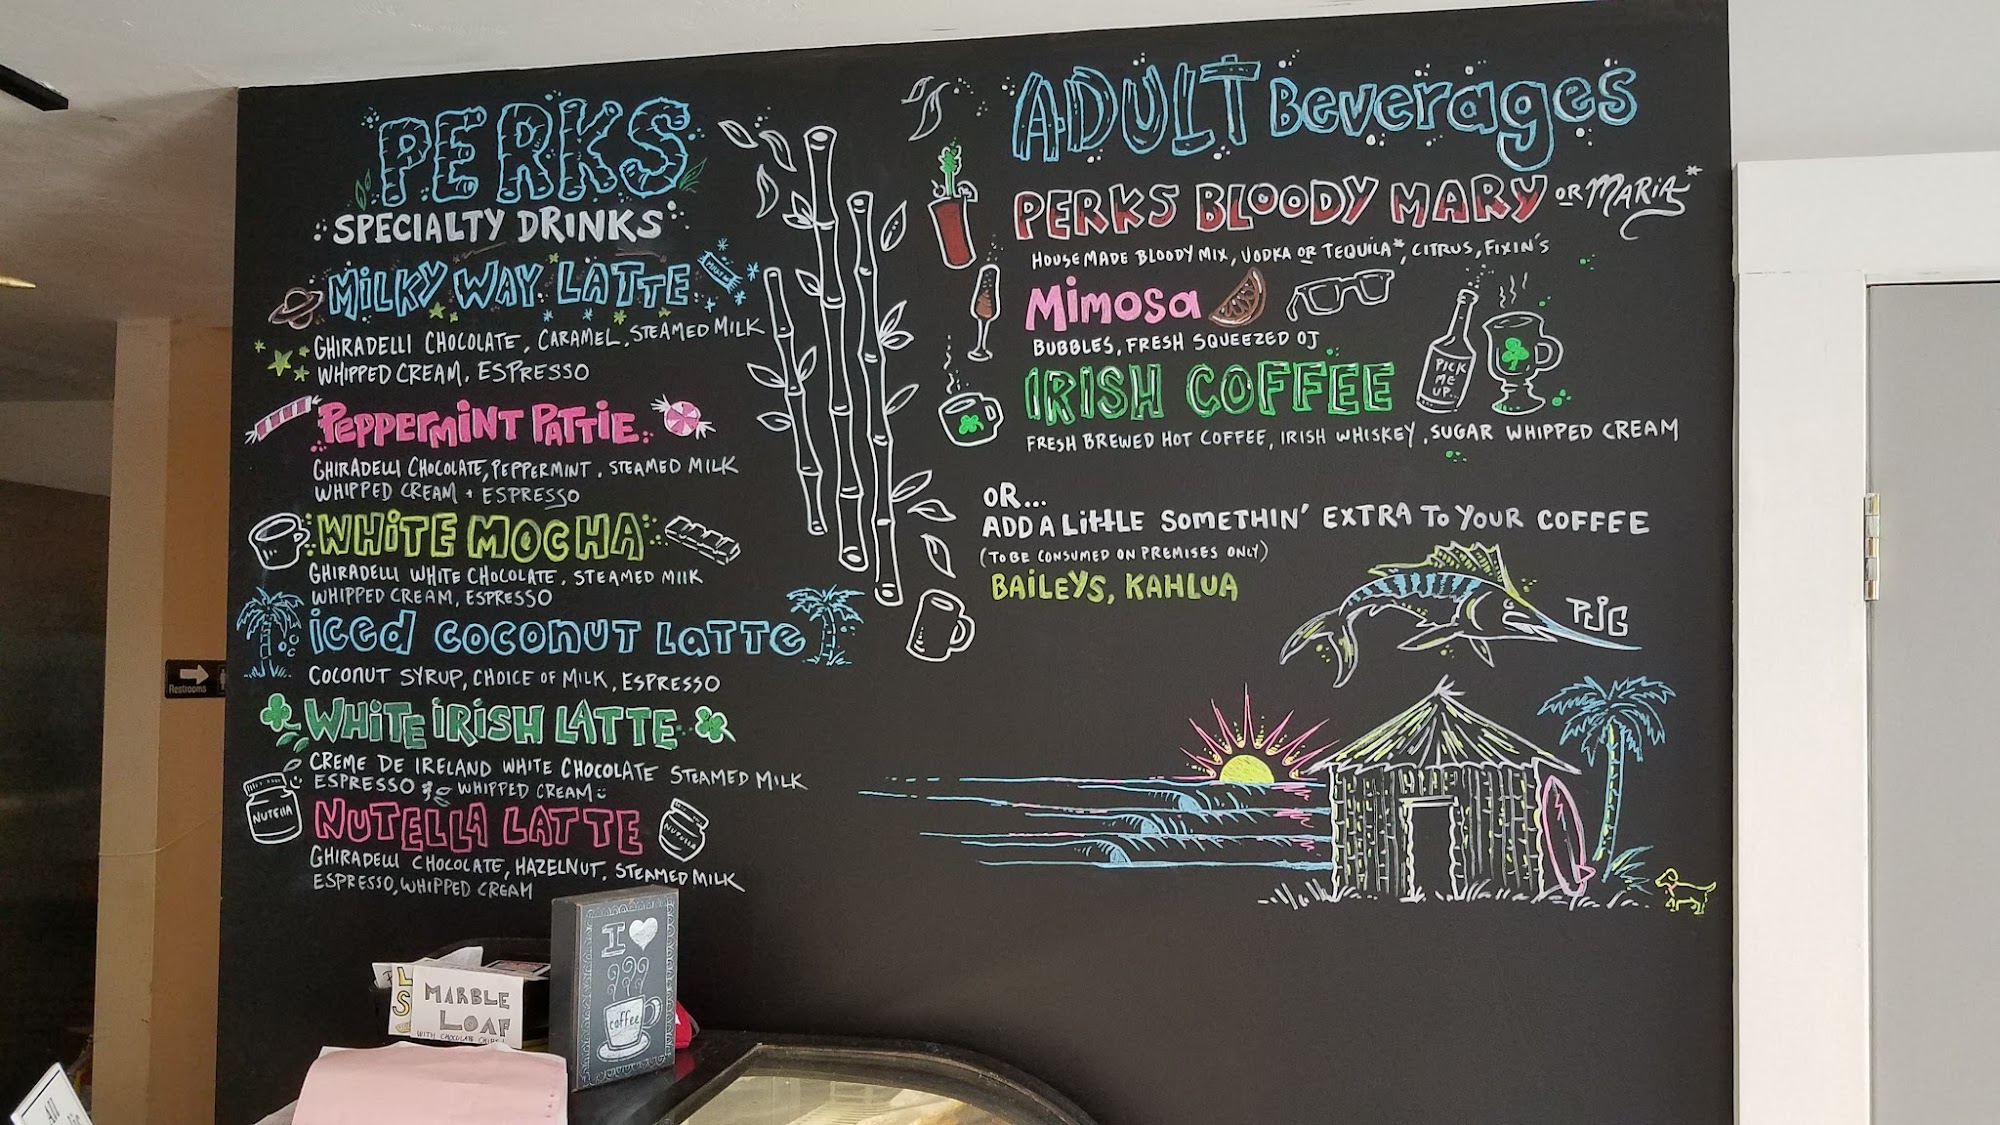 PERKS
SPECIALTY DRINKS
MILKY WAY LATTE
GHIRADELLI CHOCOLATE, CARAMEL, STEAMED MILK
WHIPPED CREAM, ESPRESSO
PEPPERMINT PATTIE
GHIRADELLI CHOCOLATE, PEPPERMINT, STEAMED MILK
WHIPPED CREAM + ESPRESSO
WHITE MOCHA
GHIRADELLI WHITE CHOCOLATE, STEAMED MILK
WHIPPED CREAM, ESPRESSO
ICED COCONUT LATTE
COCONUT SYRUP, CHOICE OF MILK, ESPRESSO
WHITE IRISH LATTE
CREME DE IRELAND WHITE CHOCOLATE STEAMED MILK
ESPRESSO & WHIPPED CREAM
NUTELLA
NUTELLA LATTE
NUTELLA
GHIRADELLI CHOCOLATE, HAZELNUT, STEAMED MILK
ESPRESSO, WHIPPED CREAM
ADULT Beverages
PERKS BLOODY MARY OR MARIA*
HOUSEMADE BLOODY MIX, VODKA OR TEQUILA*, CITRUS, FIXIN'S
Mimosa
BUBBLES, FRESH SQUEEZED OJ
IRISH COFFEE
PICK
ME
UP..
FRESH BREWED HOT COFFEE, IRISH WHISKEY, SUGAR WHIPPED CREAM
OR...
ADD A LITTLE SOMETHIN' EXTRA TO YOUR COFFEE
(TO BE CONSUMED ON PREMISES ONLY)
BAILEYS, KAHLUA
PJC
Restrooms
I
coffee
MARBLE
LOAF
WITH CHOCOLATE CHIPS
All